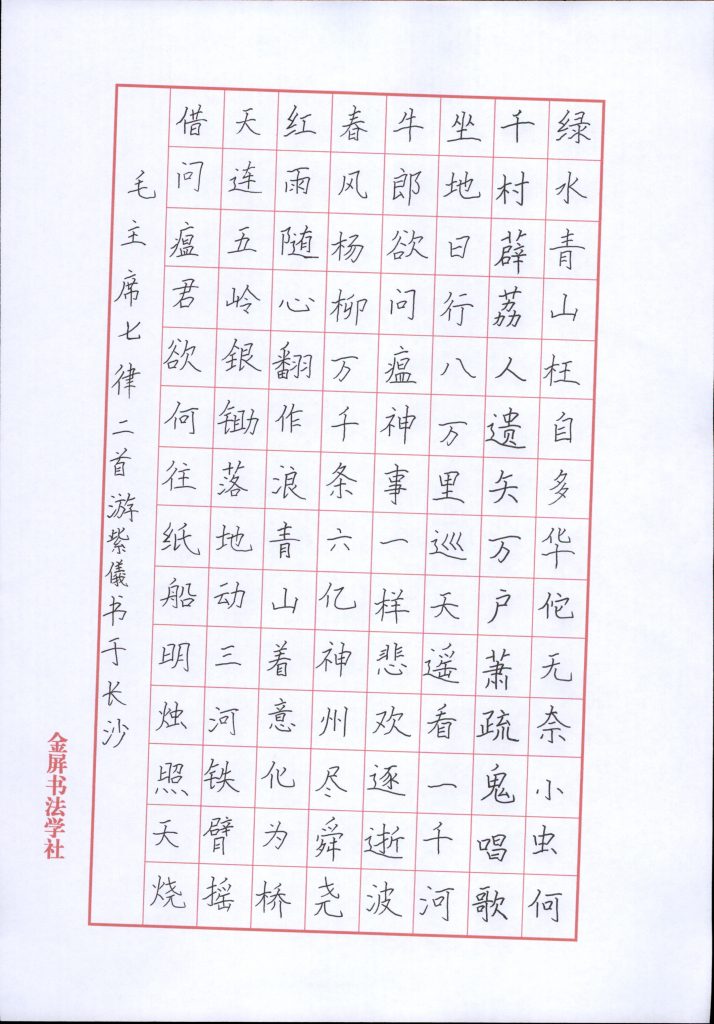 绿水青山枉自多华佗无奈小虫何
千村薜荔人遗矢万户萧疏鬼唱歌
坐地日行八万里巡天遥看一千河
牛郎欲问瘟神事一样悲欢逐逝波
春风杨柳万千条六亿神州尽舜尧
红雨随心翻作浪青山着意化为桥
天连五岭银锄落地动三河铁臂摇
借问瘟君欲何往纸船明烛照天烧
毛主席七律二首游紫儀书于长沙
金屏书法学社